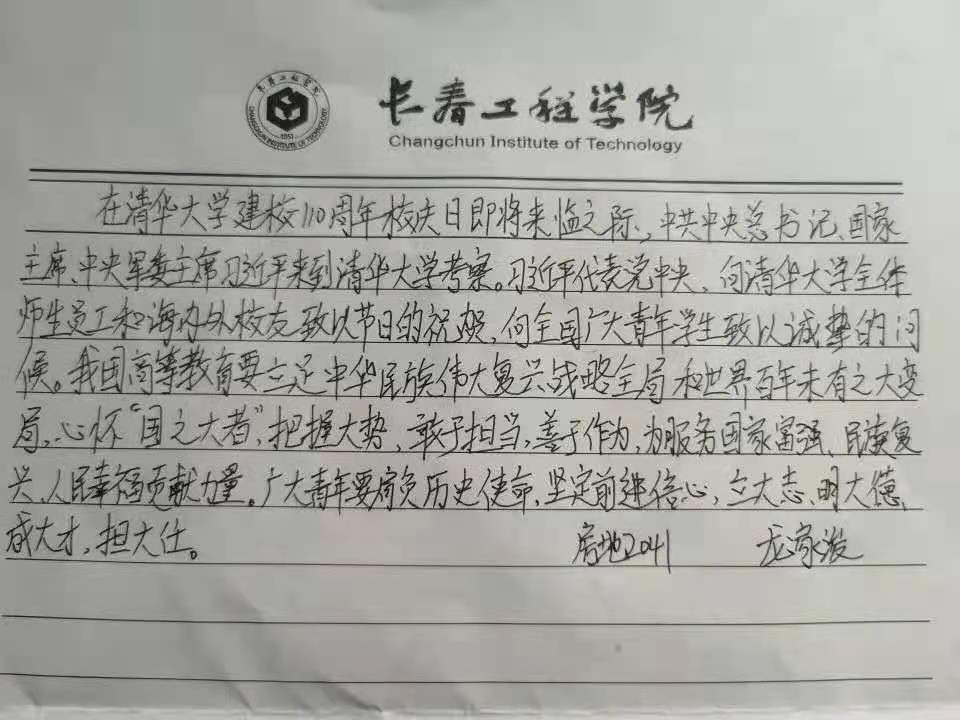 长春工程学院
CHANGCHUN INSTITUTE OF TECHNOLOGY
1951
长春工程学院
Changchun Institute of Technology
在清华大学建校110周年校庆日即将来临之际,中共中央总书记、国家
主席、中央军委主席习近平来到清华大学考察。习近平代表党中央、向清华大学全体
师生员工和海内外校友致以节日的祝贺,向全国广大青年学生致以诚挚的问
候。我国高等教育要立足中华民族伟大复兴战略全局和世界百年未有之大变
局,心怀“国之大者”,把握大势、敢于担当,善于作为,为服务国家富强、民族复
兴、人民幸福贡献力量。广大青年要肩负历史使命,坚定前进信心,立大志、明大德、
成大才,担大任。
房地2041 龙家浚